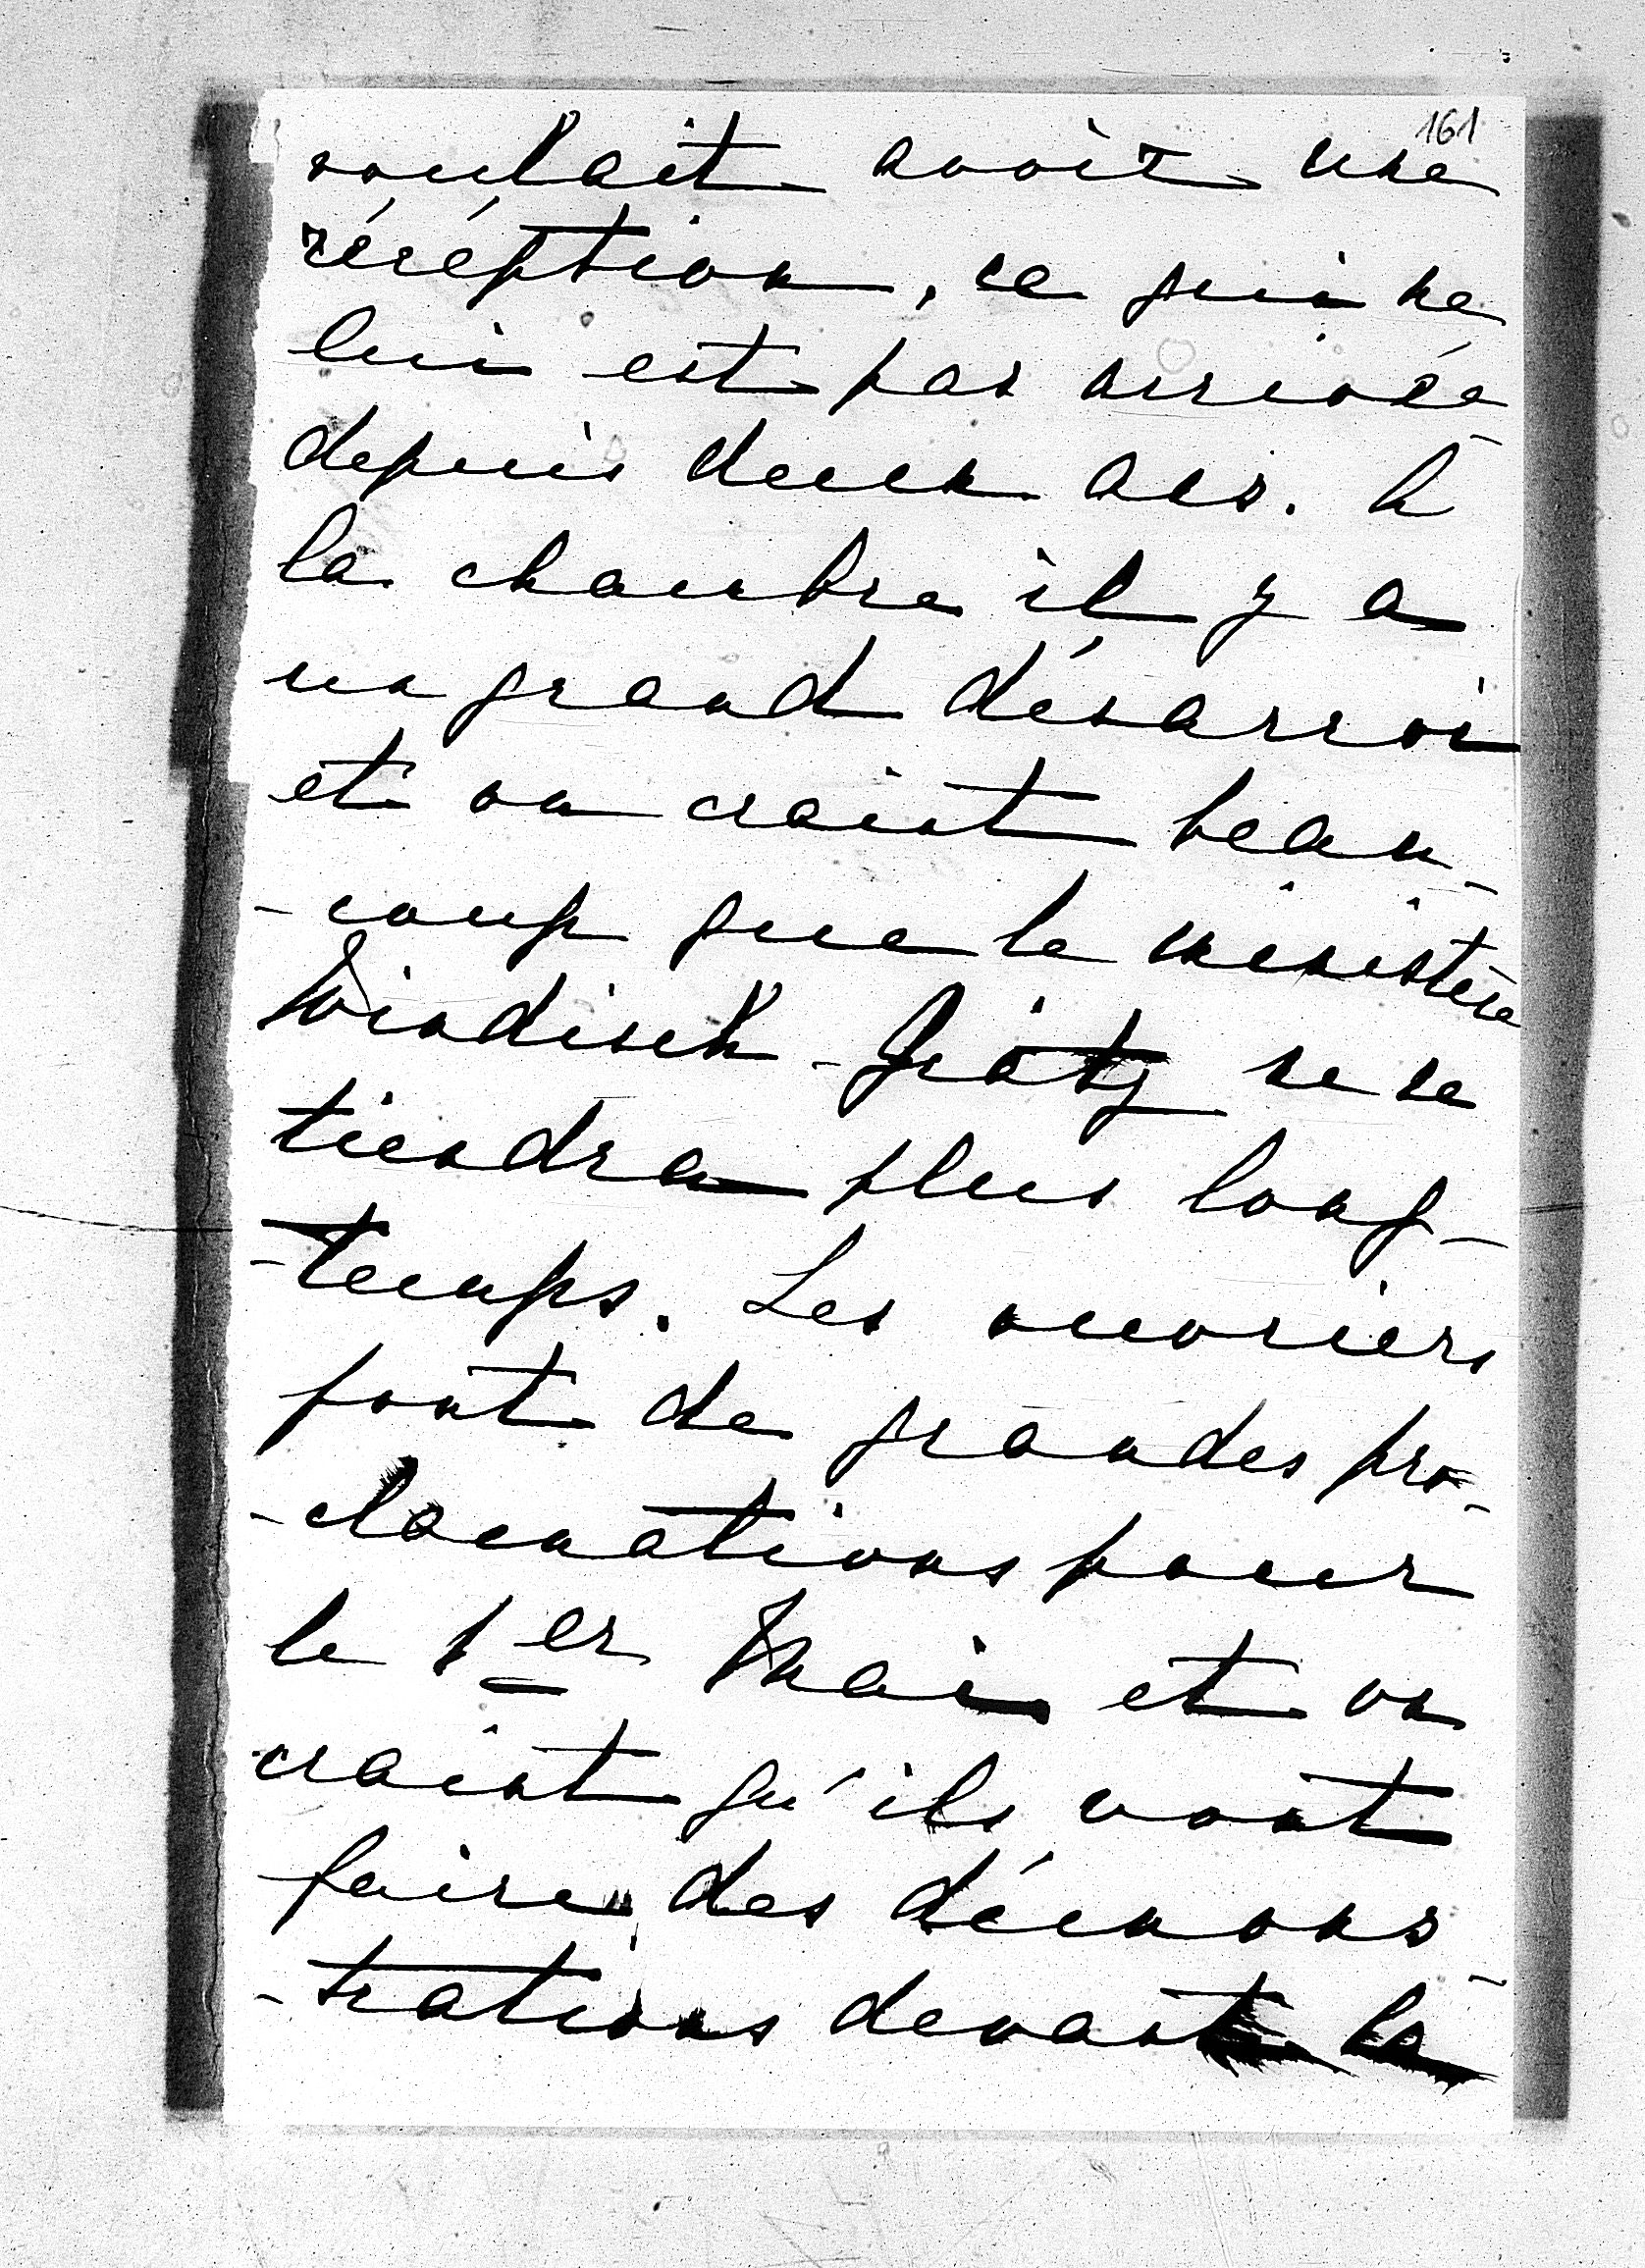 161
voulait avoir une
récéption, ce qui ne
lui est pas arrivée
depuis deux ans. A
la chambre il y a
un grand désarroi
et on craint beau-
-coup que le ministère
Windisch-Grätz ne se
tiendra plus long-
-temps. Les ouvriers
font de grandes pro-
-clamations pour
le 1er Mai et on
craint qu'ils vont
faire des démons-
-trations devant le